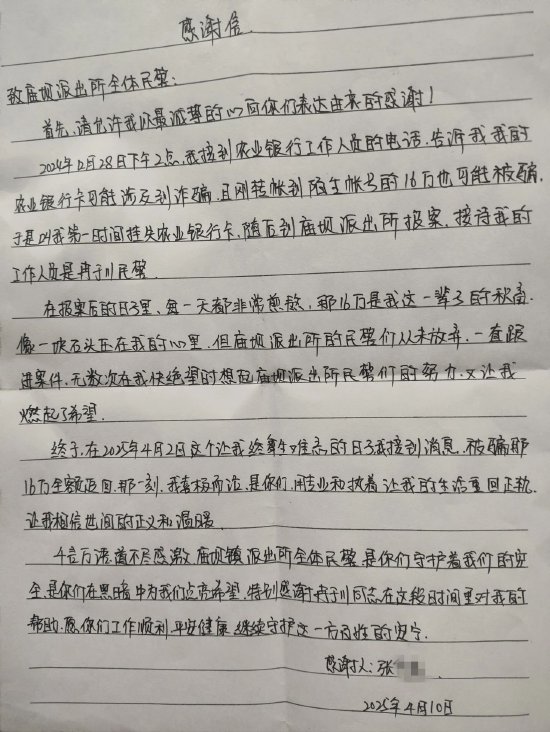 感谢信
致庙坝派出所全体民警:
首先,请允许我以最诚挚的心向你们表达由衷的感谢!
2024年12月28日下午2点,我接到农业银行工作人员的电话,告诉我我的
农业银行卡可能涉及到诈骗,且刚转帐到陌生帐号的16万也可能被骗,
于是叫我第一时间挂失农业银行卡,随后到庙坝派出所报案,接待我的
工作人员是冉于川民警.
在报案后的日子里,每一天都非常煎熬,那16万是我这一辈子的积蓄,
像一块石头压在我的心里,但庙坝派出所的民警们从未放弃,一直跟
进案件,无数次在我快绝望时想起庙坝派出所民警们的努力,又让我
燃起了希望.
终于,在2025年4月2日这个让我终身难忘的日子我接到消息,被骗那
16万全额追回,那一刻,我喜极而泣,是你们,用专业和执着让我的生活重回正轨,
让我相信世间的正义和温暖
千言万语,道不尽感激,庙坝镇派出所全体民警,是你们守护着我们的安
全,是你们在黑暗中为我们点亮希望,特别感谢冉于川同志在这段时间里对我的
帮助.愿你们工作顺利,平安健康,继续守护这一方百姓的安宁.
感谢人:张
2025年4月10日